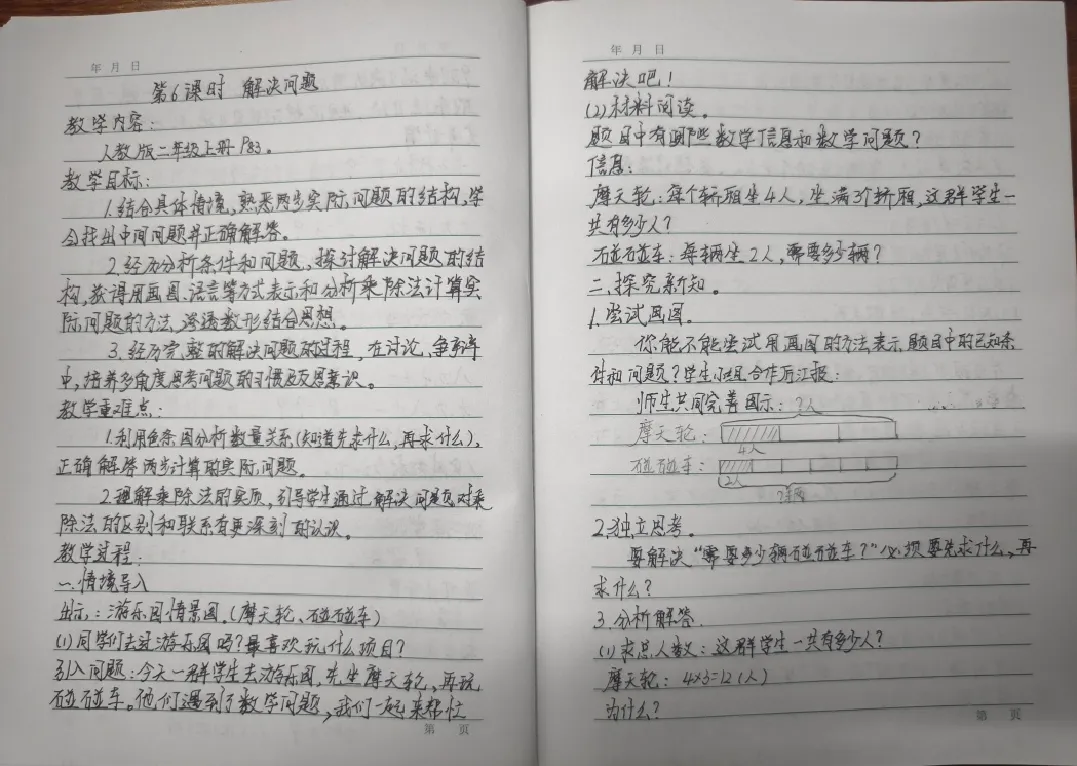 年 月 日
第6课时 解决问题
教学内容:
人教版二年级上册P83。
教学目标:
1.结合具体情境,熟悉两步实际问题的结构,学
会找出中间问题并正确解答。
2.经历分析条件和问题,探讨解决问题的结
构,获得用画图、语言等方式表示和分析乘除法计算实
际问题的方法,渗透数形结合思想。
3.经历完整的解决问题的过程,在讨论、争辩
中,培养多角度思考问题的习惯及反思意识。
教学重难点:
1.利用色条图分析数量关系(知道先求什么,再求什么),
正确解答两步计算的实际问题。
2.理解乘除法的实质,引导学生通过解决问题对乘
除法的区别和联系有更深刻的认识。
教学过程:
一.情境导入
出示:游乐园情景图.(摩天轮、碰碰车)
(1)同学们去过游乐园吗?最喜欢玩什么项目?
引入问题:今天一群学生去游乐园,先坐摩天轮,再玩
碰碰车。他们遇到了数学问题,我们一起来帮忙
第 页
年 月 日
解决吧!
(2)材料阅读。
题目中有哪些数学信息和数学问题?
信息:
摩天轮:每个轿厢坐4人,坐满3个轿厢,这群学生一
共有多少人?
碰碰车:每辆坐2人,需要多少辆?
二.探究新知。
1.尝试画图。
你能不能尝试用画图的方法表示题目中的已知条
件和问题?学生小组合作后汇报:
师生共同完善图示:?人
摩天轮:
4人
碰碰车:
2人
?辆
2.独立思考。
要解决“需要多少辆碰碰车?”必须要先求什么,再
求什么?
3.分析解答.
(1)求总人数:这群学生一共有多少人?
摩天轮:4×3=12(人)
为什么?
第 页